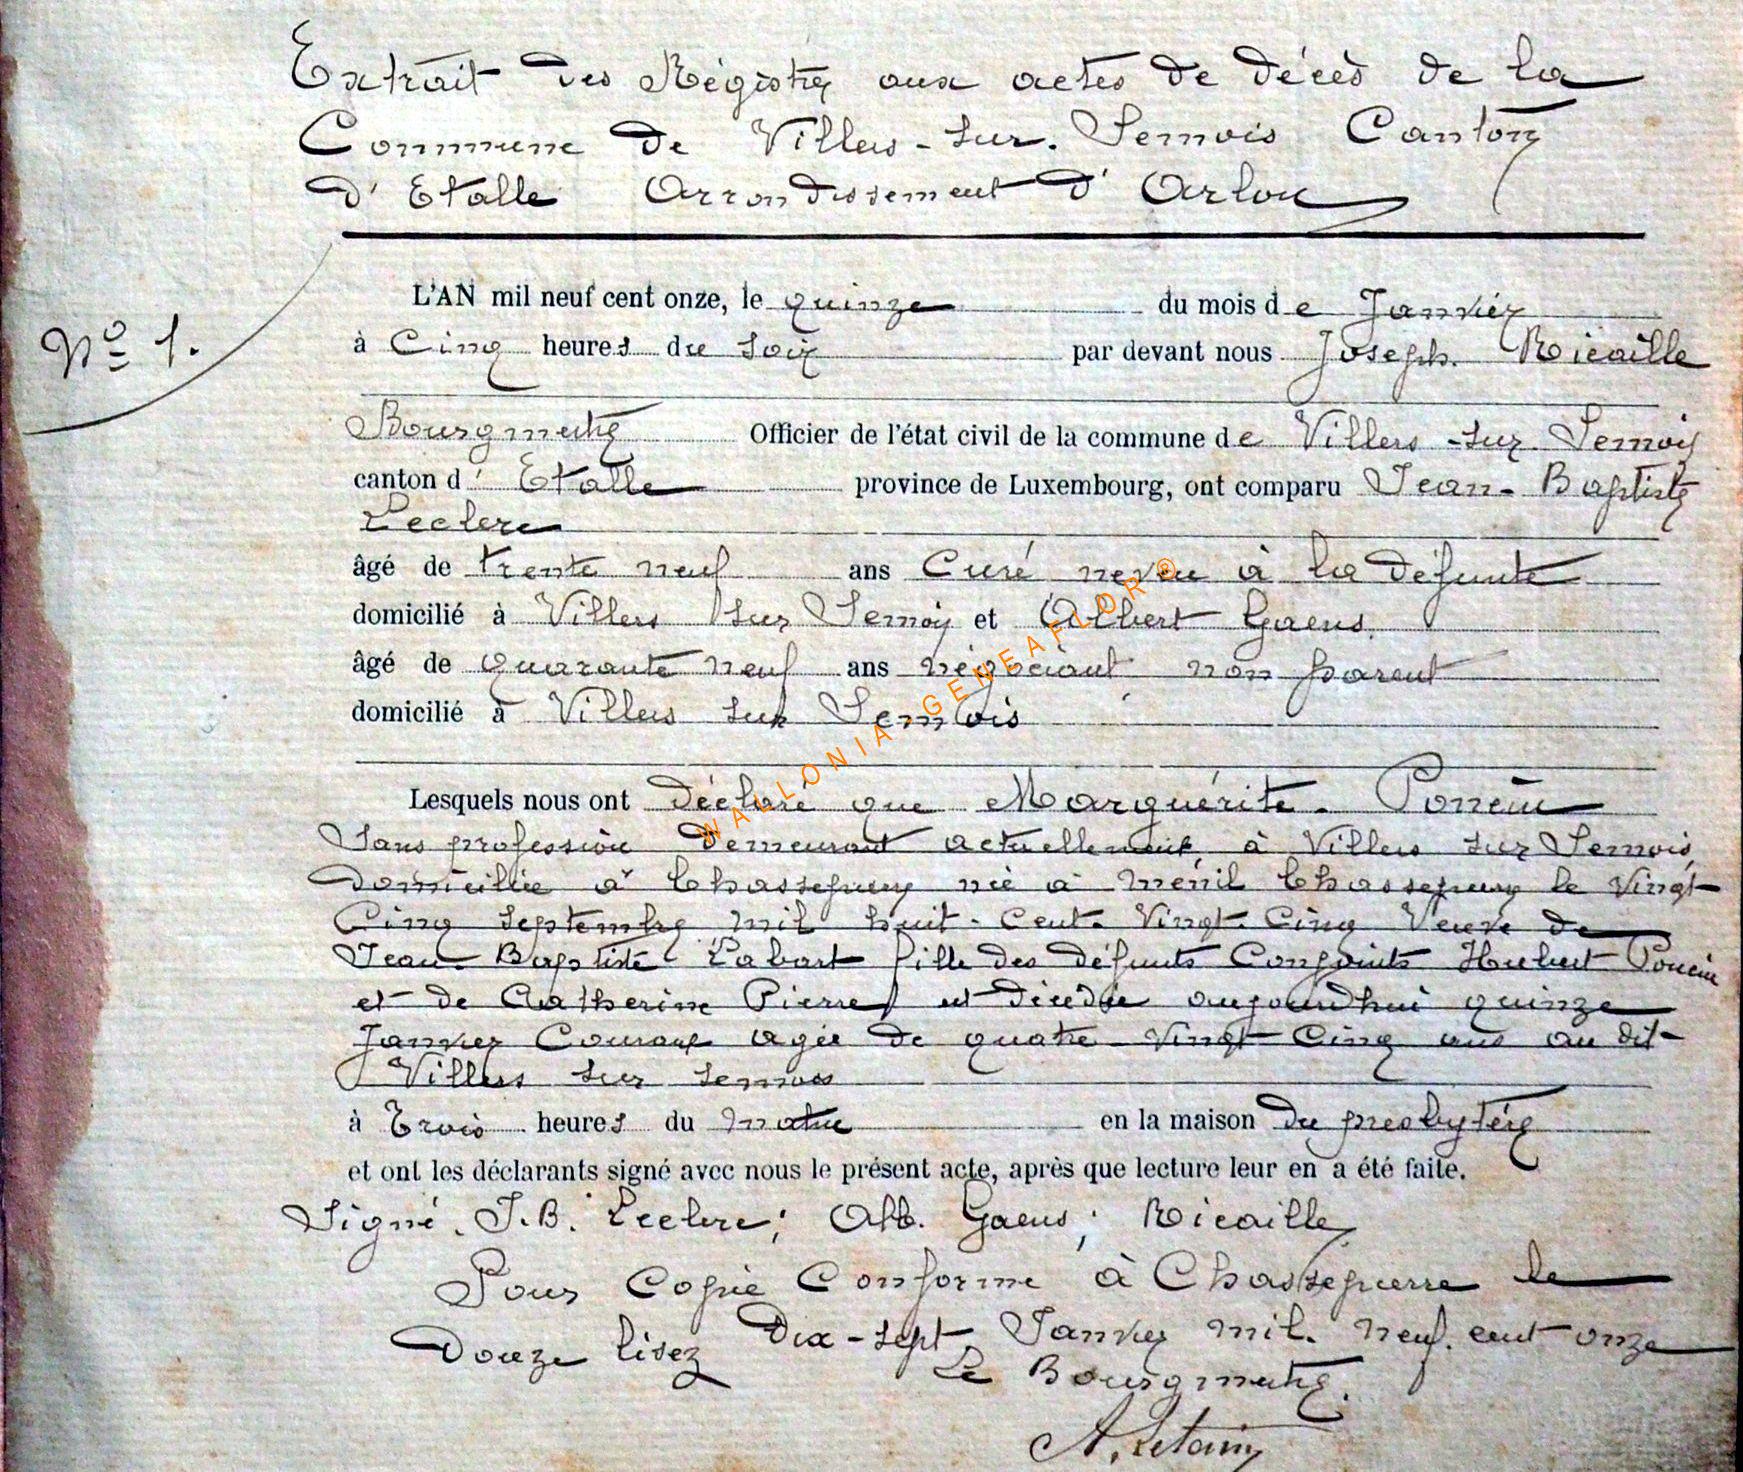 Extrait des Régistres aux actes de décès de la
Commune de Villers-sur-Semois Canton
d'Etalle Arrondissement d'Arlon
N° 1.
L'AN mil neuf cent onze, le quinze du mois de Janvier
à Cinq heures du soir par devant nous Joseph Ricaille
Bourgmestre Officier de l'état civil de la commune de Villers-sur-Semois
canton d'Etalle province de Luxembourg, ont comparu Jean-Baptiste
Leclere
âgé de trente neuf ans Curé neveu à la défunte
domicilié à Villers sur Semois et Albert Goeus
âgé de quarante neuf ans négociant non parent
domicilié à Villers sur Semois
WALLONIA-GENEAFLOR®
Lesquels nous ont déclaré que Marguérite Poncin
Sans profession demeurant actuellement à Villers sur Semois,
domiciliée à Chassepierre née à Ménil Chassepierre le Vingt
Cinq Septembre mil huit-Cent-Vingt-Cinq Veuve de
Jean-Baptiste Labart fille des défunts Conjoints Hubert Poncin
et de Catherine Pierret est décédée aujourd'hui quinze
Janvier Courant agée de quatre-Vingt Cinq ans au dit
Villers sur Semois
à Trois heures du matin en la maison du presbytère
et ont les déclarants signé avec nous le présent acte, après que lecture leur en a été faite.
Signé. J.B. Leclere; Alb. Goeus; Ricaille
Pour Copie Conforme à Chassepierre le
Douze lisez Dix-sept Janvier mil. neuf. cent onze
Le Bourgmestre.